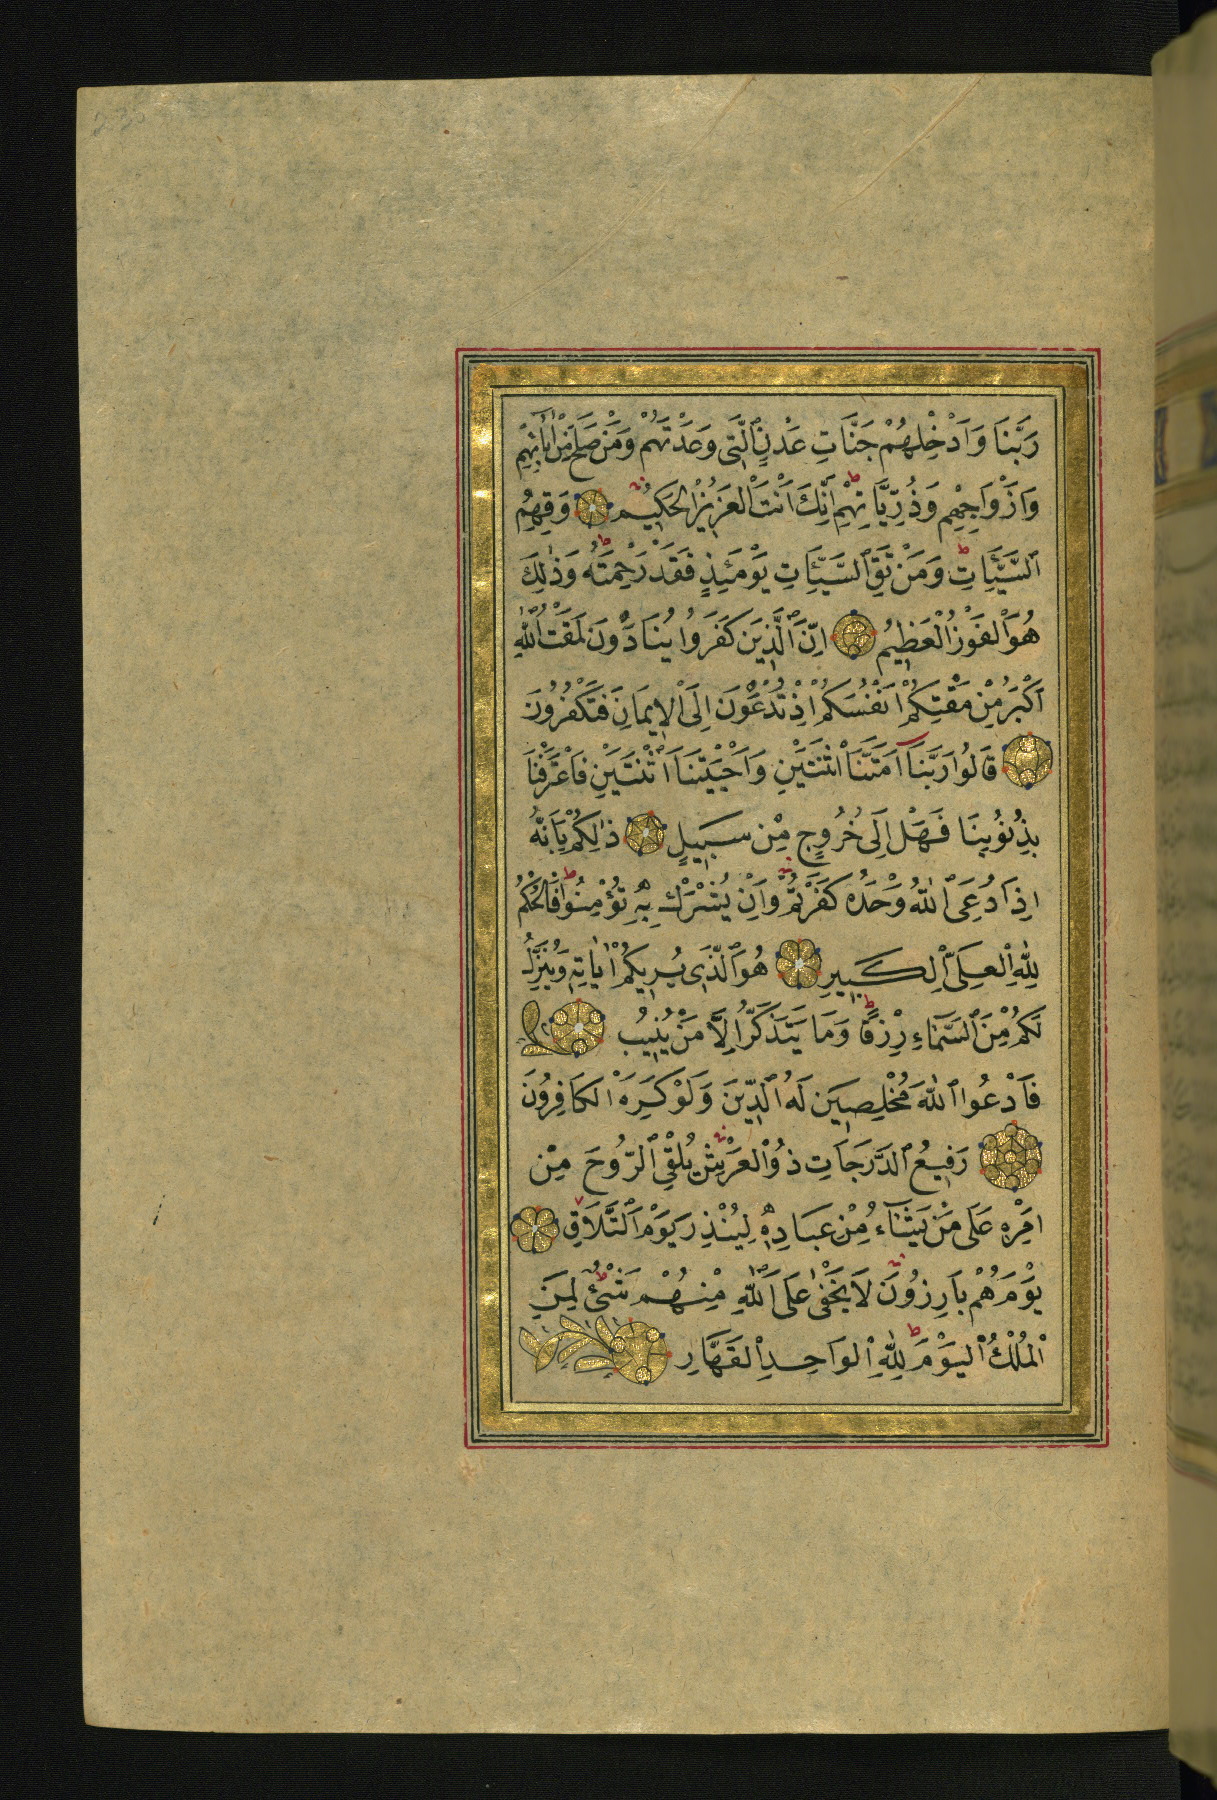 رَبَّنَا وَاَدْخِلْهُمْ جَنَّاتِ عَدْنٍ ٱلَّتٖى وَعَدْتَهُمْ وَمَنْ صَلَحَ مِنْ اٰبَائِهِمْ
وَاَزْوَاجِهِمْ وَذُرِّيَّاتِهِمْ ط اِنَّكَ اَنْتَ ٱلْعَزٖيزُ ٱلْحَكٖيمُ وَقِهِمُ
ٱلسَّيِّئَاتِ ط وَمَنْ تَقِ ٱلسَّيِّئَاتِ يَوْمَئِذٍ فَقَدْ رَحِمْتَهُ ط وَذٰلِكَ
هُوَ ٱلْفَوْزُ ٱلْعَظٖيمُ اِنَّ ٱلَّذٖينَ كَفَرُوا يُنَادَوْنَ لَمَقْتُ ٱللّٰهِ
اَكْبَرُ مِنْ مَقْتِكُمْ اَنْفُسَكُمْ اِذْ تُدْعَوْنَ اِلَى ٱلْاٖيمَانِ فَتَكْفُرُونَ
قَالُوا رَبَّنَآ اَمَتَّنَا ٱثْنَتَيْنِ وَاَحْيَيْتَنَا ٱثْنَتَيْنِ فَاعْتَرَفْنَا
بِذُنُوبِنَا فَهَلْ اِلَى خُرُوجٍ مِنْ سَبٖيلٍ ذٰلِكُمْ بِاَنَّهُ
اِذَا دُعِىَ ٱللّٰهُ وَحْدَهُ كَفَرْتُمْ وَاِنْ يُشْرَكْ بِهٖ تُؤْمِنُوا ط فَالْحُكْمُ
لِلّٰهِ ٱلْعَلِىِّ ٱلْكَبٖيرِ هُوَ ٱلَّذٖى يُرٖيكُمْ اٰيَاتِهٖ وَيُنَزِّلُ
لَكُمْ مِنَ ٱلسَّمَآءِ رِزْقًا ط وَمَا يَتَذَكَّرُ اِلَّا مَنْ يُنٖيبُ
فَادْعُوا ٱللّٰهَ مُخْلِصٖينَ لَهُ ٱلدّٖينَ وَلَوْ كَرِهَ ٱلْكَافِرُونَ
رَفٖيعُ ٱلدَّرَجَاتِ ذُو ٱلْعَرْشِ يُلْقِى ٱلرُّوحَ مِنْ
اَمْرِهٖ عَلَى مَنْ يَشَآءُ مِنْ عِبَادِهٖ لِيُنْذِرَ يَوْمَ ٱلتَّلَاقِ
يَوْمَ هُمْ بَارِزُونَ لَا يَخْفٰى عَلَى ٱللّٰهِ مِنْهُمْ شَىْءٌ ط لِمَنِ
ٱلْمُلْكُ ٱلْيَوْمَ ط لِلّٰهِ ٱلْوَاحِدِ ٱلْقَهَّارِ